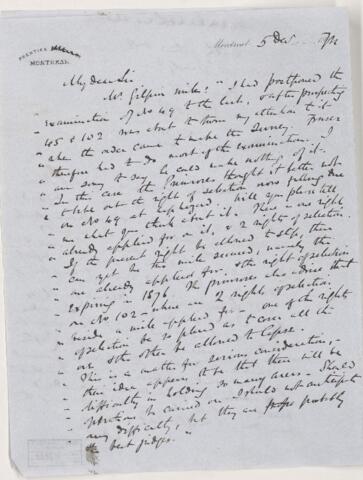 PRENTICE
MONTREAL
Montreal 5 Dec
My dear Sir
Mr. Gilpin writes "I had postponed the
" examination of No 49 to the last, & after prospecting
" 45 & 102 was about to turn my attention to it
" when the order came to make the Survey. Fraser
" therefore had to do most of the examination. I
" am sorry to say he could make nothing of it.
" In this case the Messrs Primrose thought it better not
" to take out the right of selection now falling due
" on No 49 as employed. Will you please tell
" me what you think about it. There is one right
" already applied for on it, & 2 rights of selection.
" If the present right be allowed to slip, there
" can yet be two mile secured, namely the
" one already applied for & the right of selection
" expiring in 1876. The Primroses also advise that
" on No 102 where are 2 rights of selection
" beside a mile applied for – one of the rights
" of selection be so placed as to cover all the
" ore & the other be allowed to lapse.
" This is a matter for serious consideration,
" their idea appears to be that there will be
" difficulty in holding so many areas. Should
" operations be carried on I should not anticipate
" any difficulty, but they are probably
" the best judges."